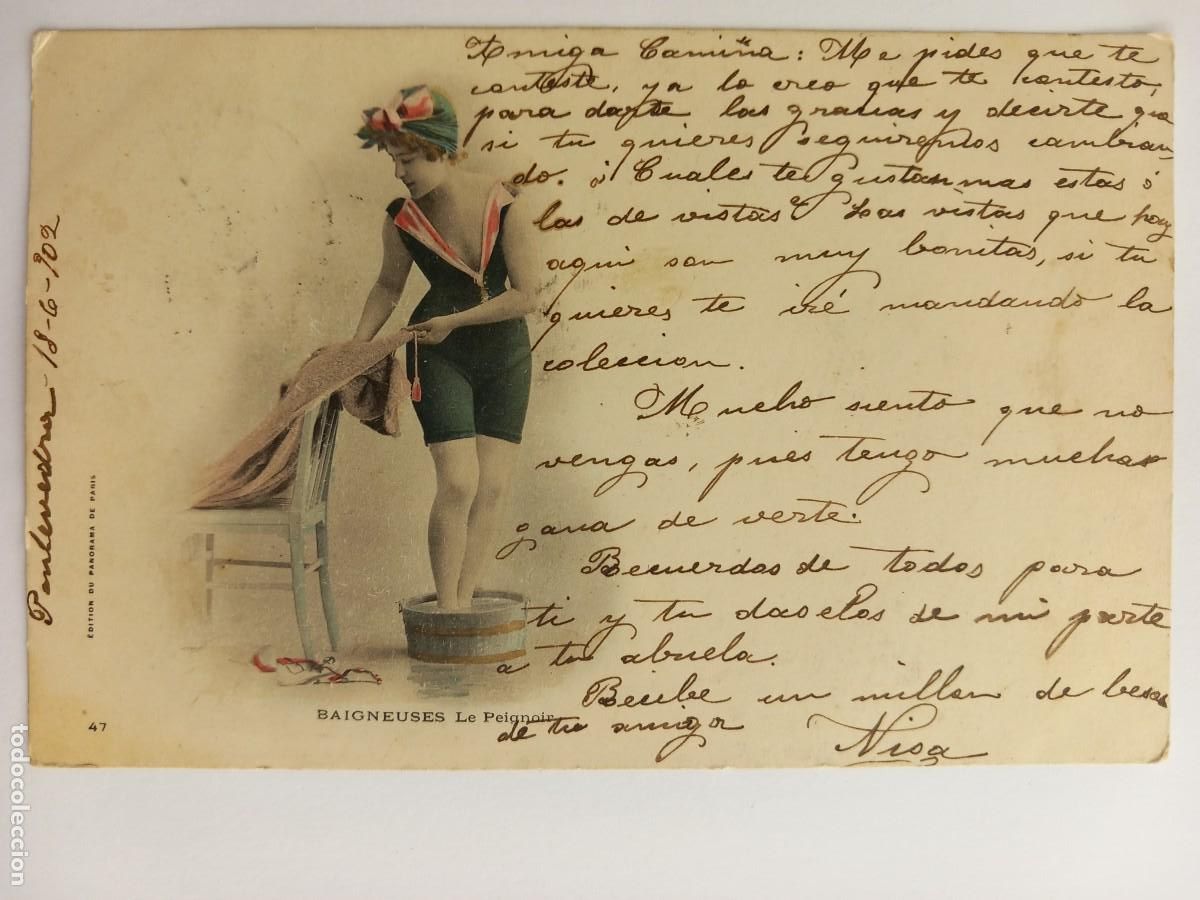 Amiga Camiña: Me pides que te
conteste, ya lo creo que te contesto,
para darte las gracias y decirte que
si tu quieres seguiremos cambian-
do. ¿Cuales te gustan mas estas ó
las de vistas? Las vistas que hay
aqui son muy bonitas, si tu
quieres te iré mandando la
coleccion.
Mucho siento que no
vengas, pues tengo muchas
gana de verte.
Recuerdos de todos para
ti y tu daselos de mi parte
a tu abuela.
Recibe un millon de besos
de tu amiga
Nisa
Pontevedra 18-6-902
ÉDITION DU PANORAMA DE PARIS
47
BAIGNEUSES Le Peignoir
todocoleccion